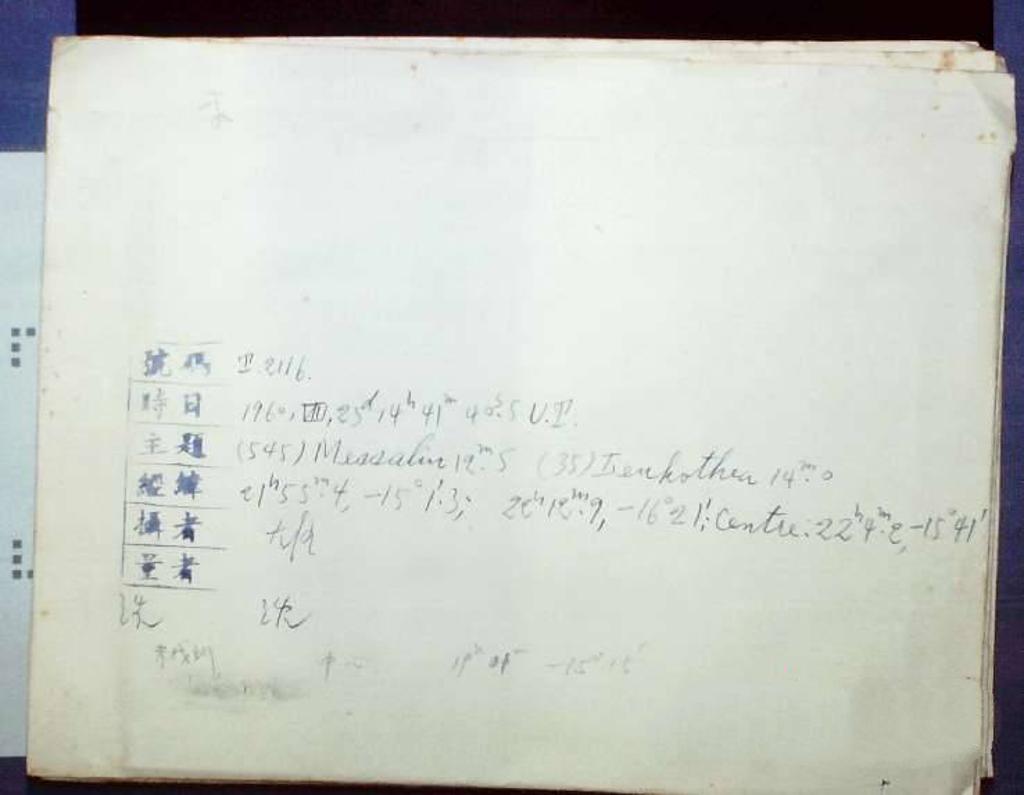 號碼 II.2116.
時日 1960, VIII, 25ᵈ, 14ʰ 41ᵐ 40ˢ.5 U.T.
主題 (545) Messalin 12ᵐ.5 (35) Leukothea 14ᵐ.0
經緯 21ʰ55ᵐ.4, -15°1'.3; 22ʰ12ᵐ.9, -16°21'; Centre: 22ʰ4ᵐ.2, -15°41'
攝者
量者
洗 沈
中心 -15° 15'